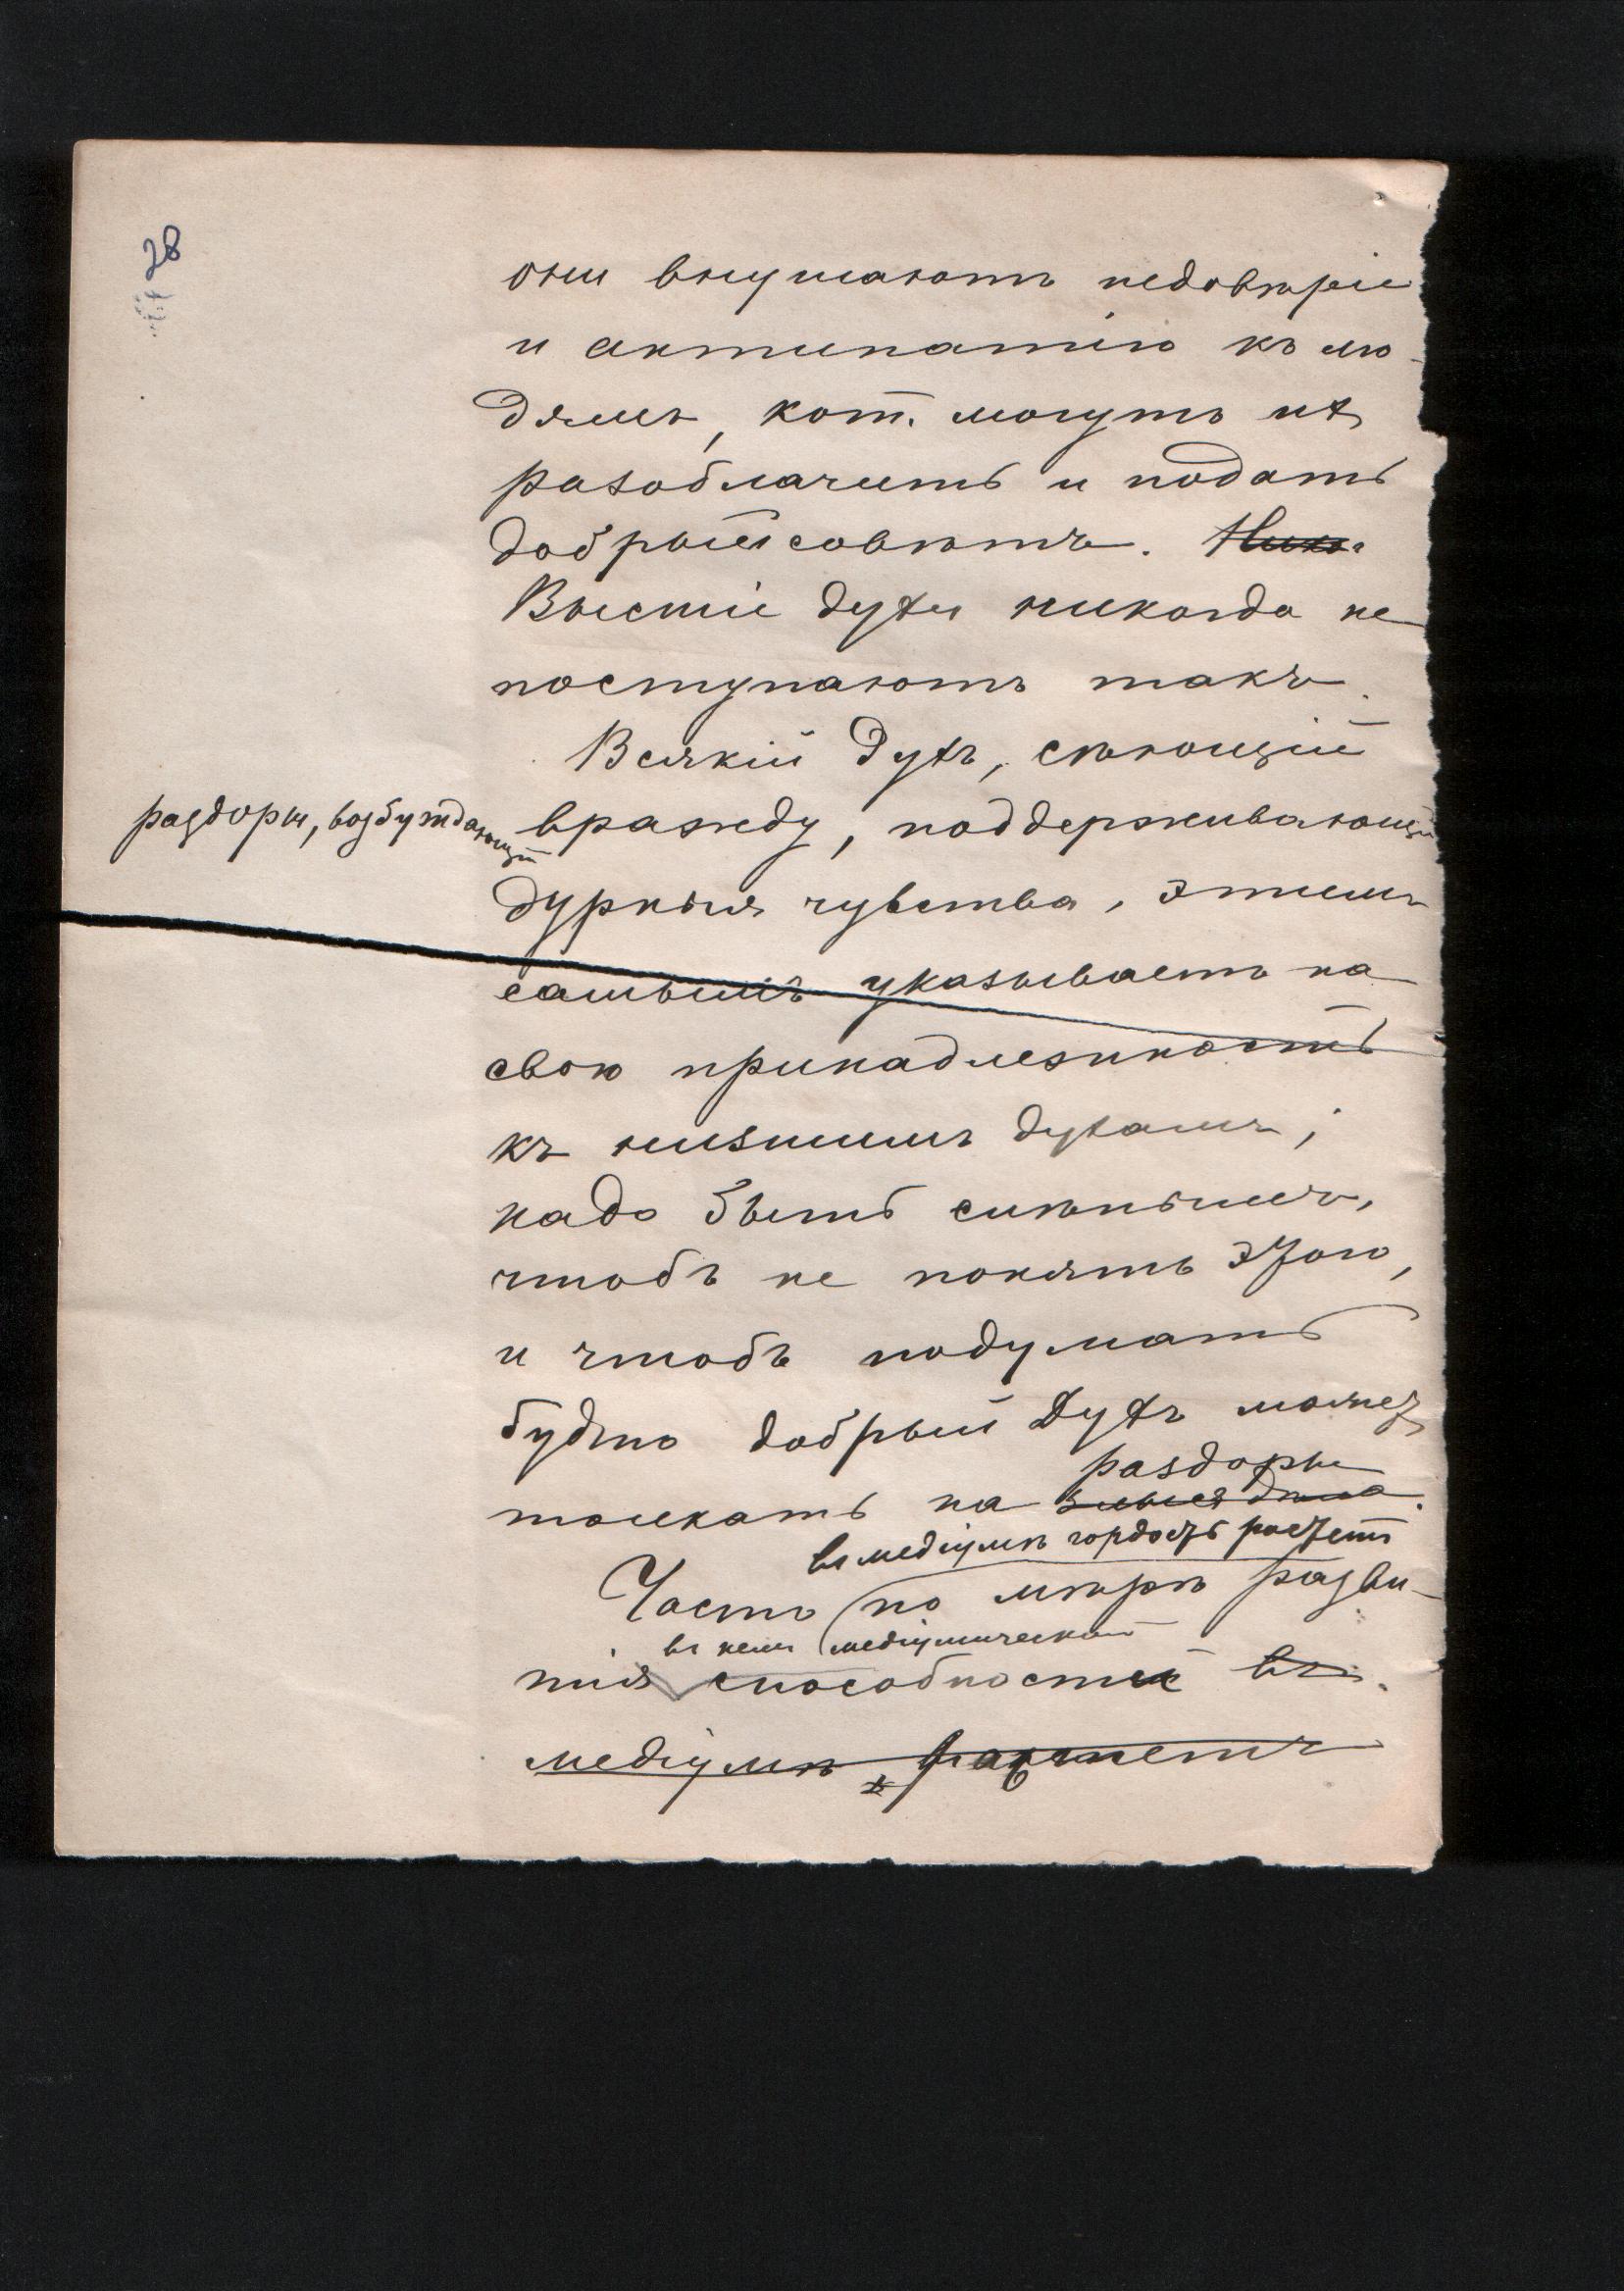 28
они внушаютъ недовѣріе
и антипатію къ лю-
дямъ, кот. могутъ их
разоблачить и подать
добрый совѣтъ. Нико
Высшіе духи никогда не
поступаютъ такъ.
Всякій Духъ, сѣющій
раздоры, возбуждающій вражду, поддерживающій
дурныя чувства, этимъ
самымъ указываетъ на
свою принадлежность
къ низшимъ духамъ;
надо быть слѣпымъ,
чтобъ не понять этого,
и чтобъ подумать
будто добрый Духъ может
раздоры
толкать на злыя дѣла.
въ медіумѣ гордость растетъ
Часто по мѣрѣ разви-
въ немъ медіумической
тія способностей въ
медіумѣ